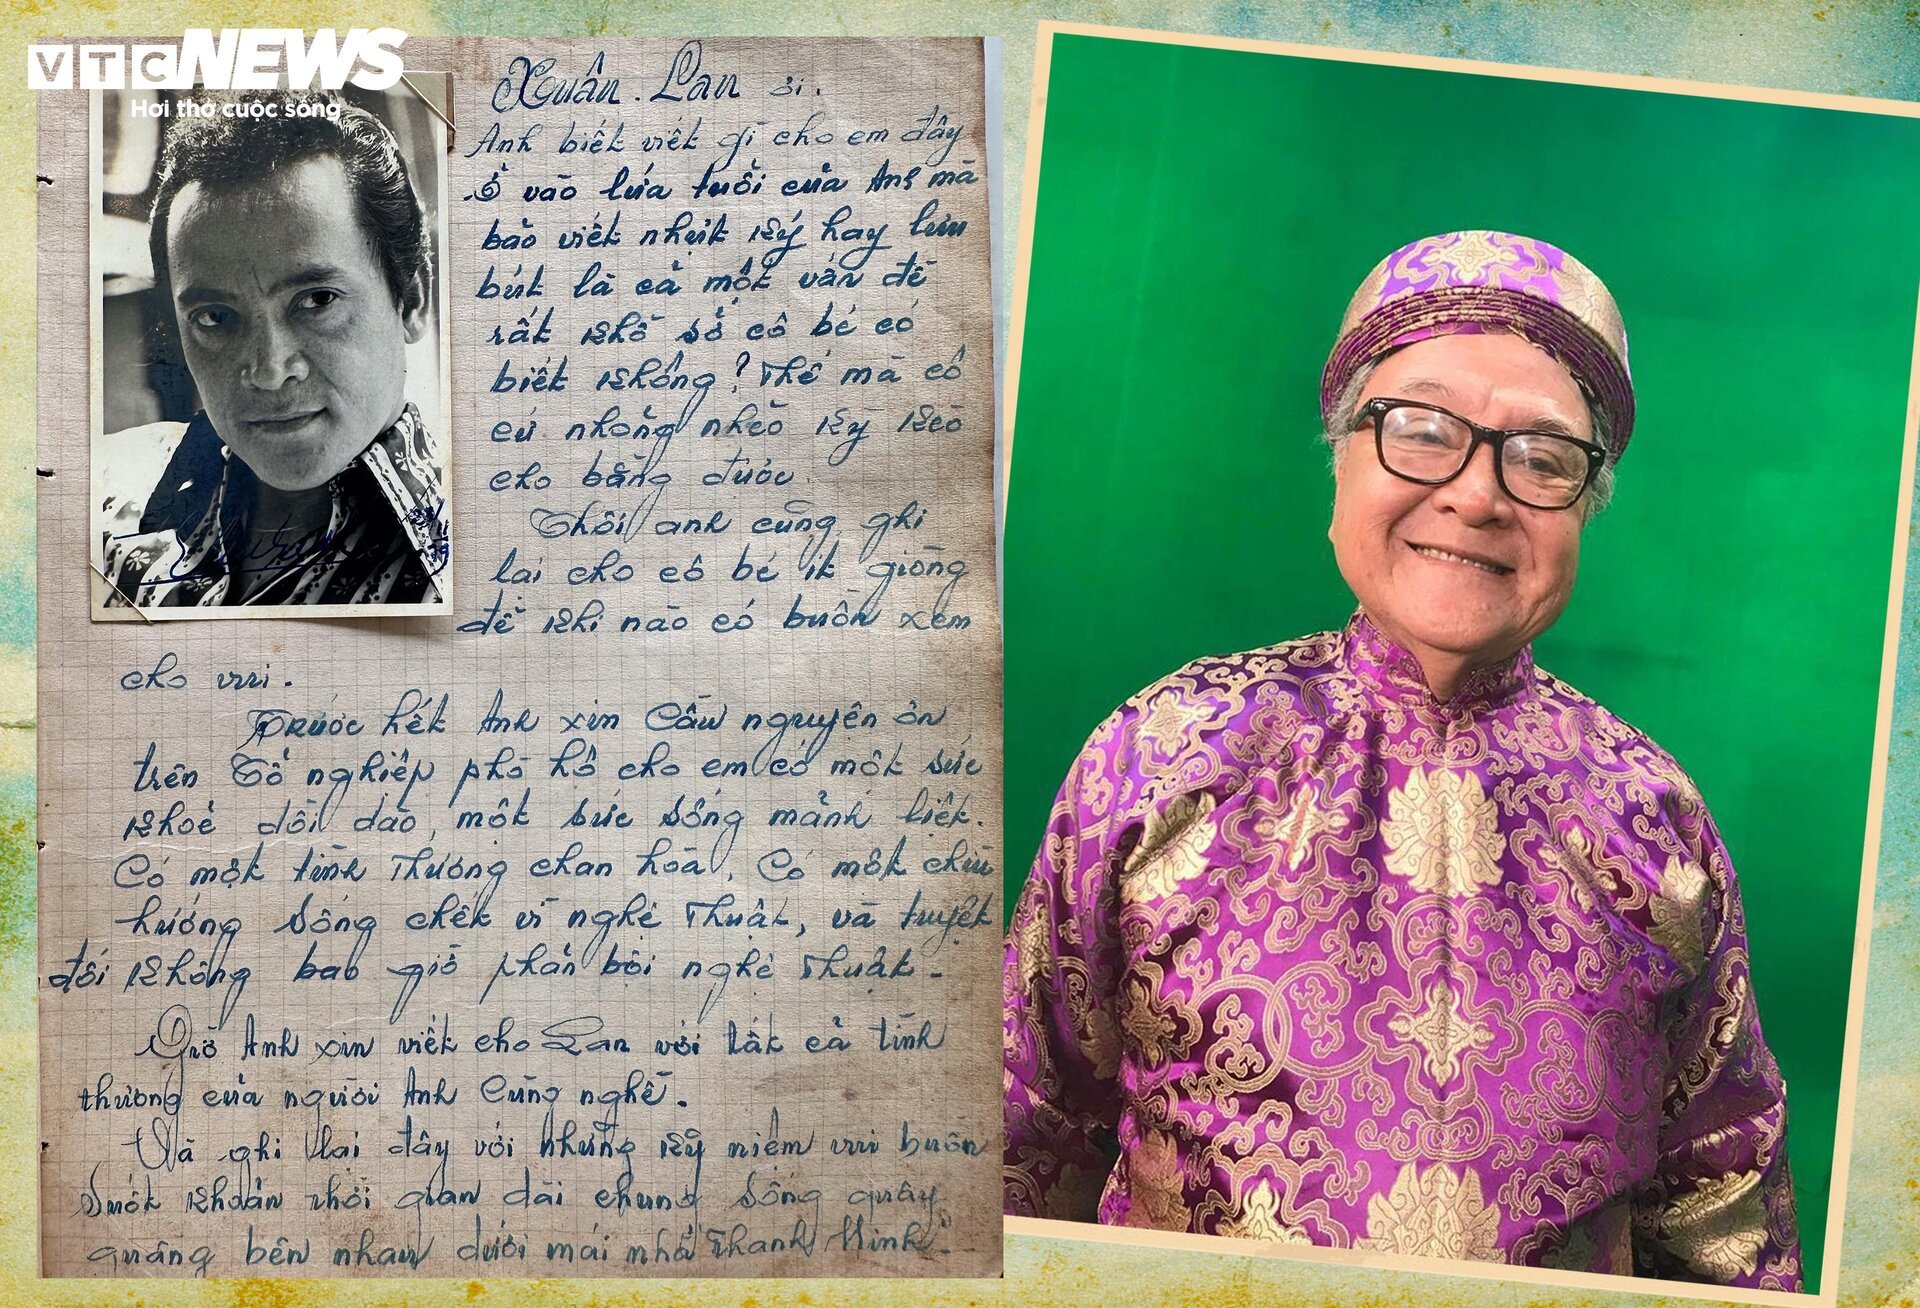 VTC NEWS
Hơi thở cuộc sống
Xuân Lan ơi.
Anh biết viết gì cho em đây
Ở vào lứa tuổi của Anh mà
bảo viết nhựt ký hay lưu
bút là cả một vấn đề
rất khổ sở cô bé có
biết không? Thế mà cô
cứ nhõng nhẽo kỳ kèo
cho bằng được.
Thôi anh cũng ghi
lại cho cô bé ít giòng
để khi nào có buồn xem
cho vui.
Trước hết Anh xin Cầu nguyện ơn
trên Tổ nghiệp phò hộ cho em có một sức
khoẻ dồi dào, một sức sống mảnh liệt.
Có một tình thương chan hòa, Có một chiều
hướng sống chết vì nghệ thuật, và tuyệt
đối không bao giờ phản bội nghệ thuật.
Giờ Anh xin viết cho Lan với tất cả tình
thương của người Anh Cùng nghề.
Và ghi lại đây với những kỷ niệm vui buồn
Suốt khoản thời gian dài chung sống quây
quầng bên nhau dưới mái nhà Thanh Minh.